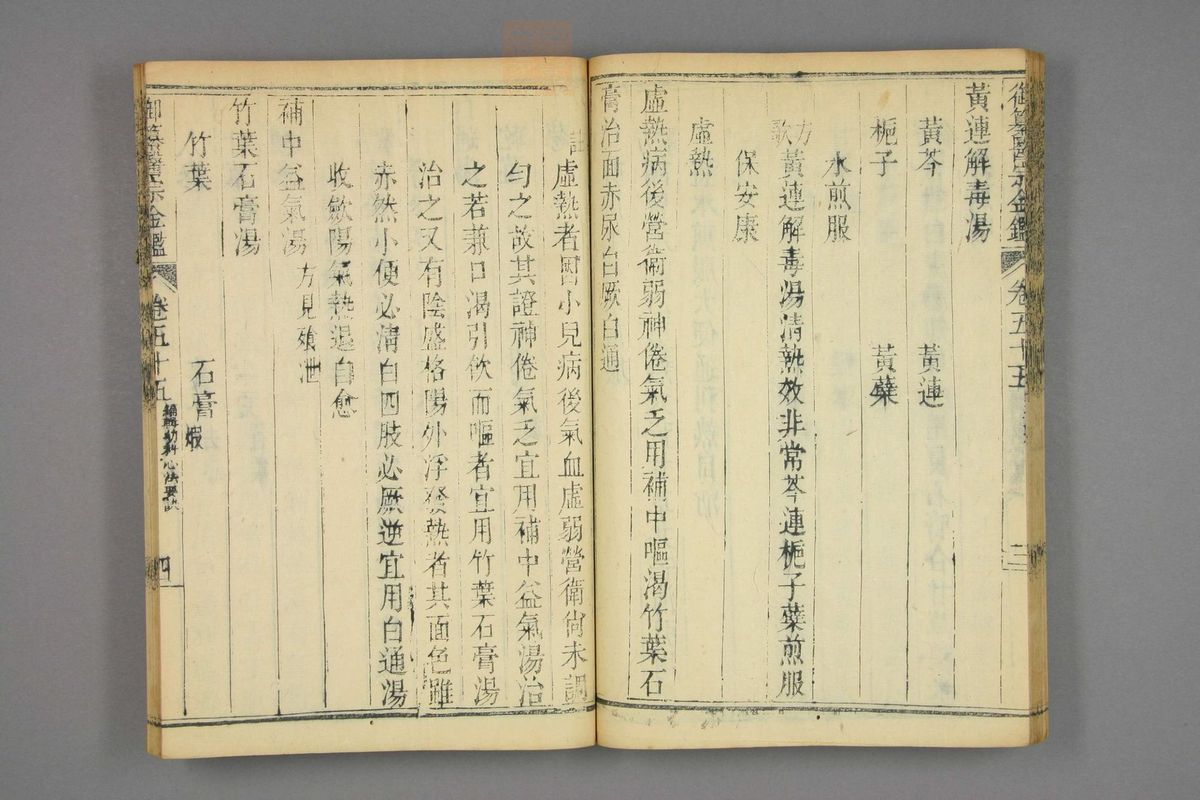 御纂醫宗金鑑 卷五十五 三
黃連解毒湯
黃芩 黃連
梔子 黃蘗
水煎服
方歌 黃連解毒湯清熱效非常芩連梔子蘗煎服
保安康
虛熱
虛熱病後營衛弱神倦氣乏用補中嘔渴竹葉石
膏治面赤尿白厥白通
註 虛熱者因小兒病後氣血虛弱營衛尚未調
勻之故其證神倦氣乏宜用補中益氣湯治
之若兼口渴引飲而嘔者宜用竹葉石膏湯
治之又有陰盛格陽外浮發熱者其面色雖
赤然小便必清白四肢必厥逆宜用白通湯
收斂陽氣熱退自愈
補中益氣湯 方見飱泄
竹葉石膏湯
竹葉 石膏煆
御纂醫宗金鑑 卷五十五 編輯幼科心法要訣 四